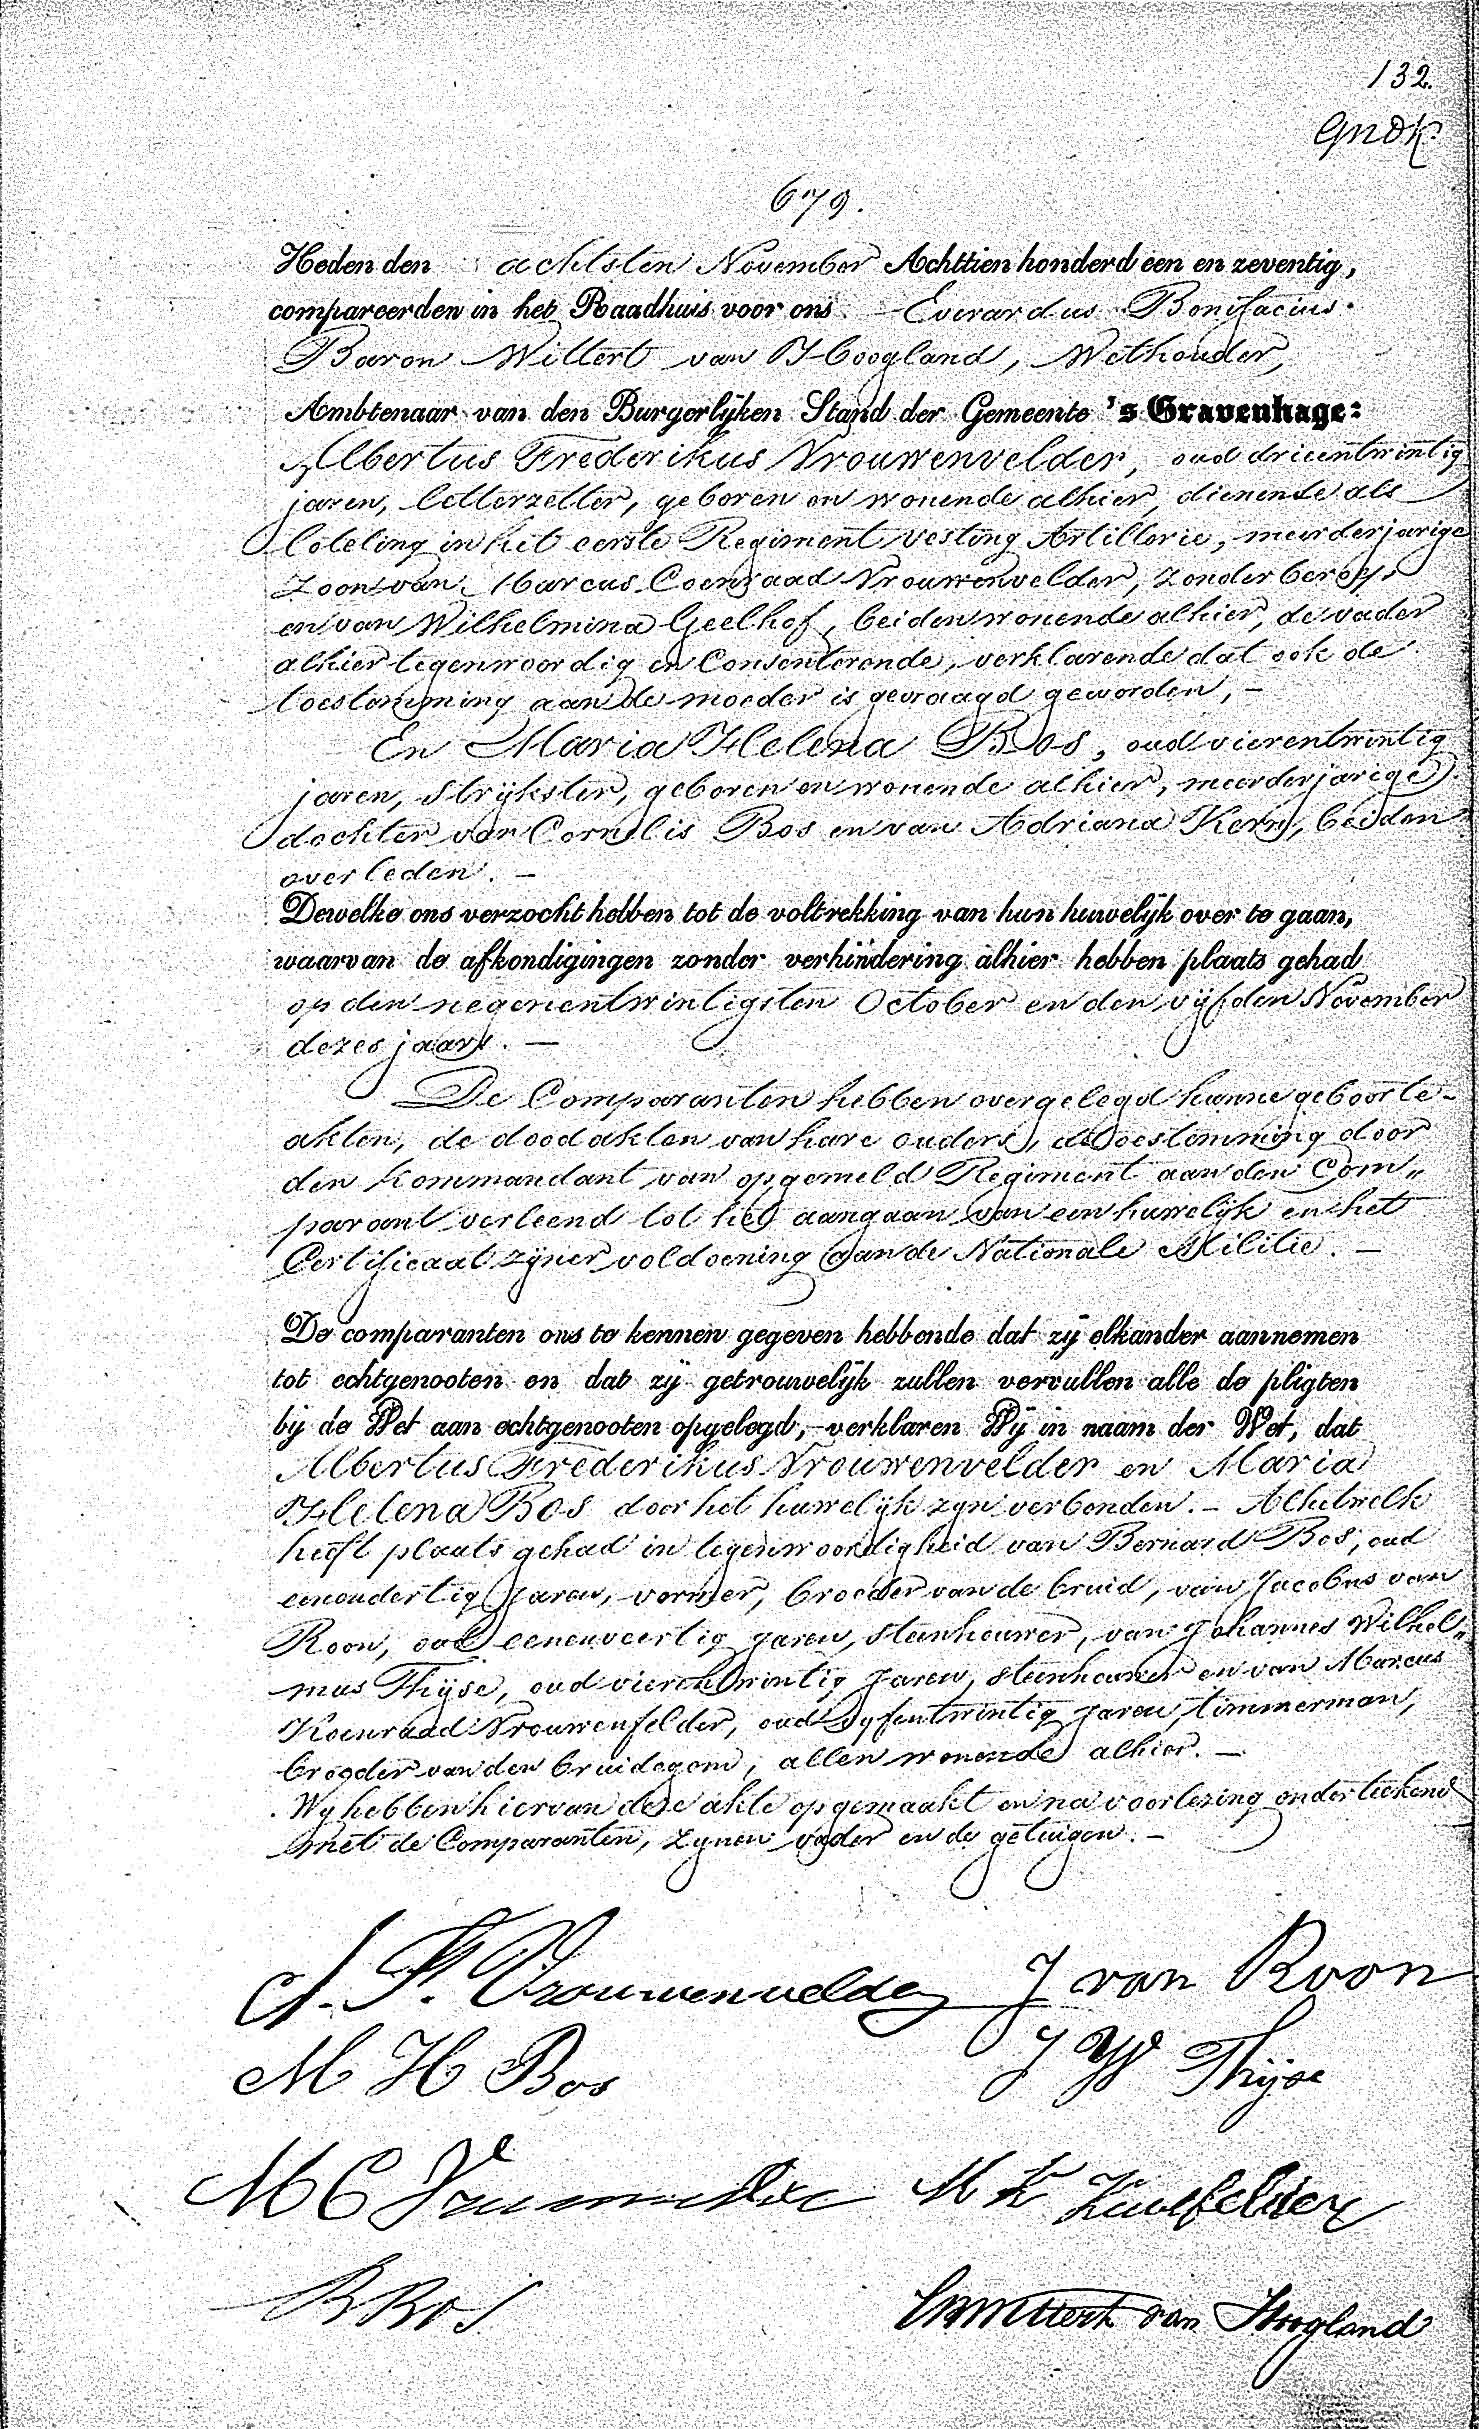 132.
679.
Heden den achtsten November Achttien honderd een en zeventig,
compareerden in het Raadhuis voor ons Everardus Bonifacius
Baron Wittert van Hoogland, Wethouder,
Ambtenaar van den Burgerlijken Stand der Gemeente 's Gravenhage:
Albertus Frederikus Vrouwenvelder, oud drieentwintig
jaren, letterzetter, geboren en wonende alhier, dienende als
loteling in het eerste Regiment Vesting Artillerie, meerderjarige
zoon van Marcus Coenraad Vrouwenvelder, zonder beroep,
en van Wilhelmina Geelhof, beiden wonende alhier, de vader
alhier tegenwoordig en Consenterende, verklarende dat ook de
toestemming aan de moeder is gevraagd geworden, –
En Maria Helena Bos, oud vierentwintig
jaren, strijkster, geboren en wonende alhier, meerderjarige
dochter van Cornelis Bos en van Adriana Kern, beiden
overleden. –
Dewelke ons verzocht hebben tot de voltrekking van hun huwelijk over te gaan,
waarvan de afkondigingen zonder verhindering alhier hebben plaats gehad
op den negenentwintigsten October en den vijfden November
dezes jaars. –
De Comparanten hebben overgelegd hunne geboorte-
akten, de doodakten van hare ouders, de toestemming door
den Kommandant van opgemeld Regiment aan den Com„
parant verleend tot het aangaan van een huwelijk en het
Certificaat zijner voldoening aan de Nationale Militie. –
De comparanten ons te kennen gegeven hebbende dat zij elkander aannemen
tot echtgenooten en dat zij getrouwelijk zullen vervullen alle de pligten
bij de Wet aan echtgenooten opgelegd,–verklaren Wij in naam der Wet, dat
Albertus Frederikus Vrouwenvelder en Maria
Helena Bos door het huwelijk zijn verbonden. – Alhetwelk
heeft plaats gehad in tegenwoordigheid van Bernard Bos, oud
eenendertig jaren, vormer, broeder van de bruid, van Jacobus van
Roon, oud eenenveertig jaren, steenhouwer, van Johannes Wilhel„
mus Thijse, oud vierentwintig jaren, steenhouwer en van Marcus
Koenraad Vrouwenfelder, oud vyfentwintig jaren, timmerman,
broeder van den bruidegom, allen wonende alhier. –
Wy hebben hiervan deze akte opgemaakt en na voorlezing onderteekend
met de Comparanten, zynen vader en de getuigen. –
A. F. Vrouwenvelder J van Roon
M H Bos J W Thijse
M C M K
B Bos Wittert van Hoogland